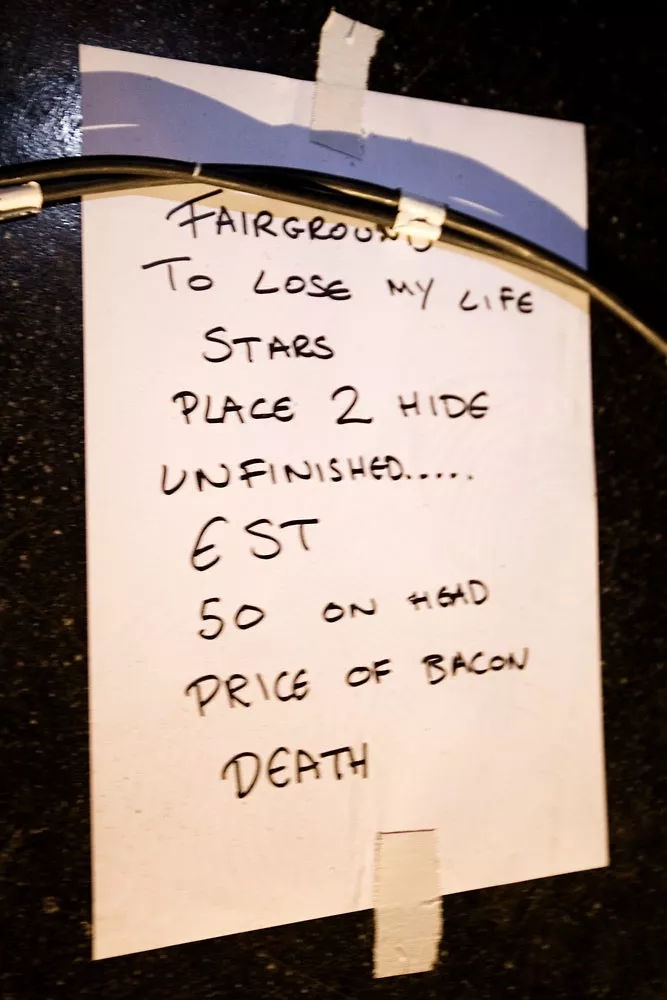 FAIRGROUND
TO LOSE MY LIFE
STARS
PLACE 2 HIDE
UNFINISHED.....
EST
50 ON HEAD
PRICE OF BACON
DEATH